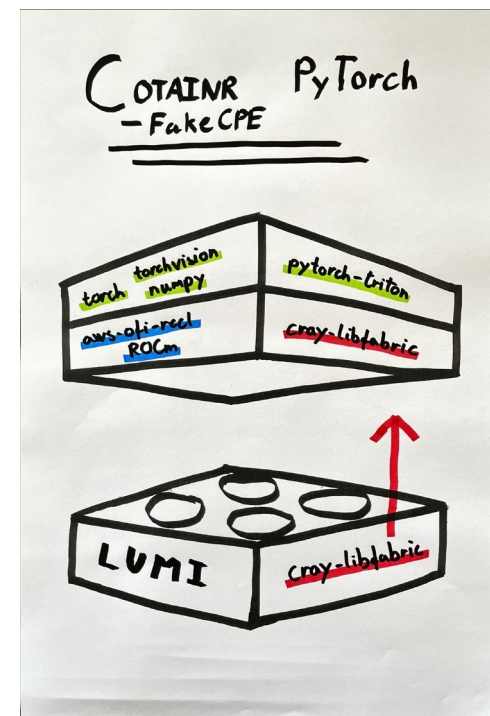 COTAINR PyTorch
-FakeCPE
torch torchvision
numpy
pytorch-triton
aws-ofi-rccl
ROCm
cray-libfabric
LUMI
cray-libfabric